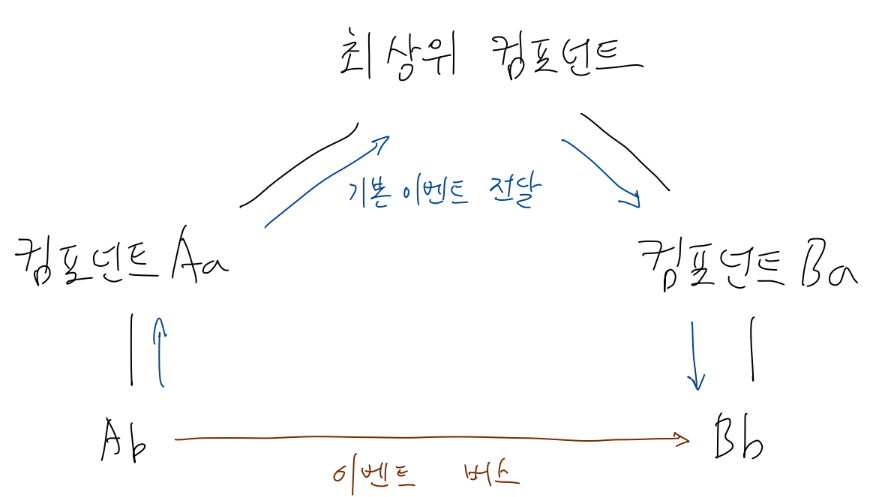 최상위 컴포넌트
기본 이벤트 전달
컴포넌트 Aa
컴포넌트 Ba
Ab
Bb
이벤트 버스